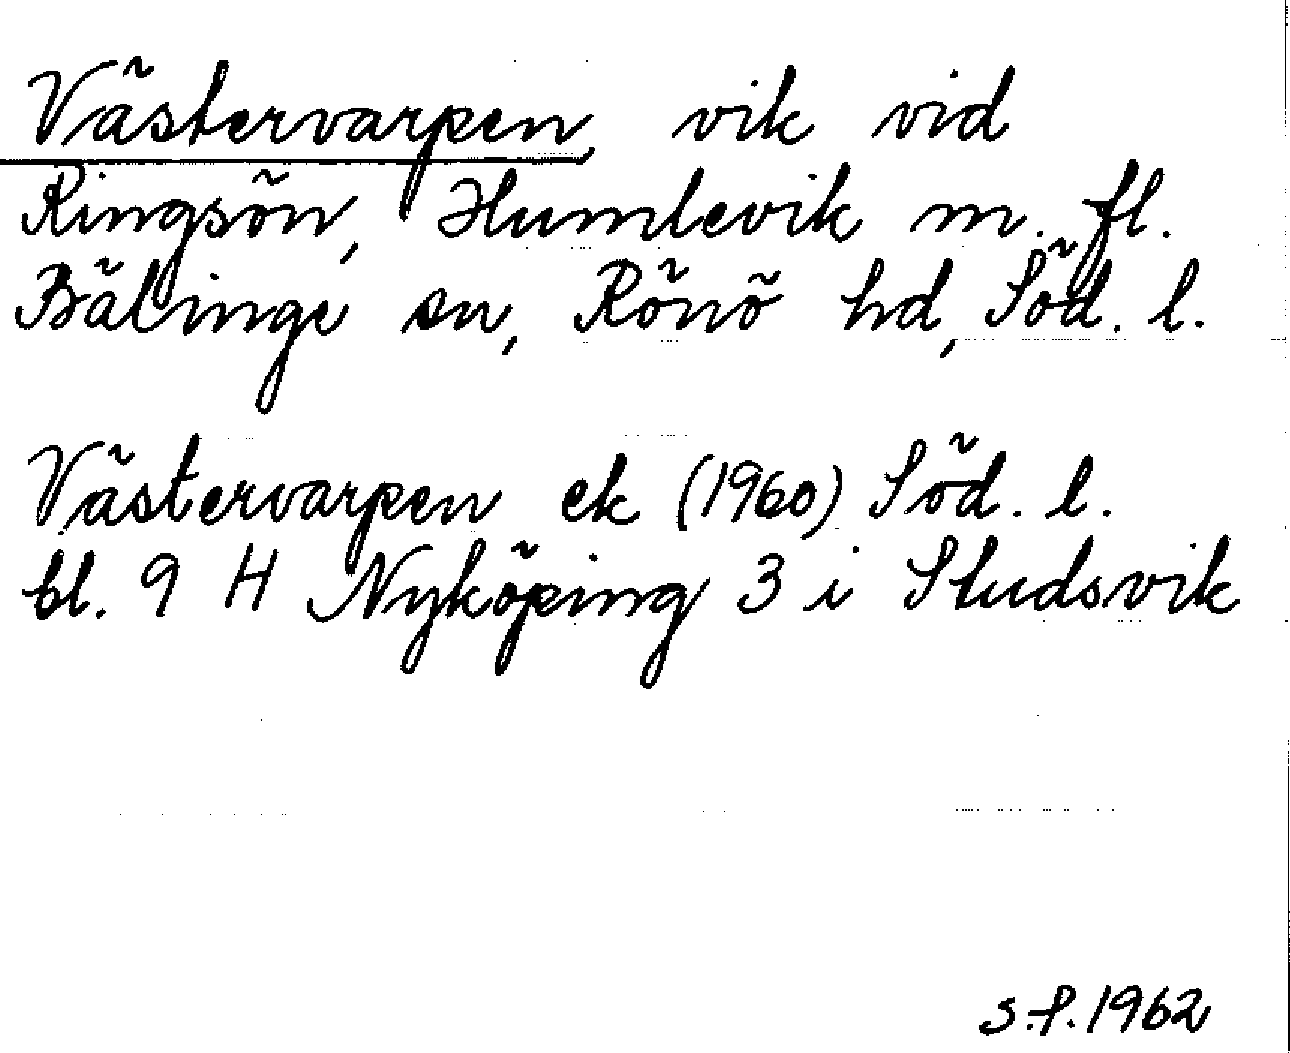 Västervarpen, vik vid
Ringsön, Humlevik m. fl.
Bälinge sn, Rönö hd, Söd. l.
Västervarpen ek (1960) Söd. l.
bl. 9 H Nyköping 3 i Studsvik
S.P. 1962